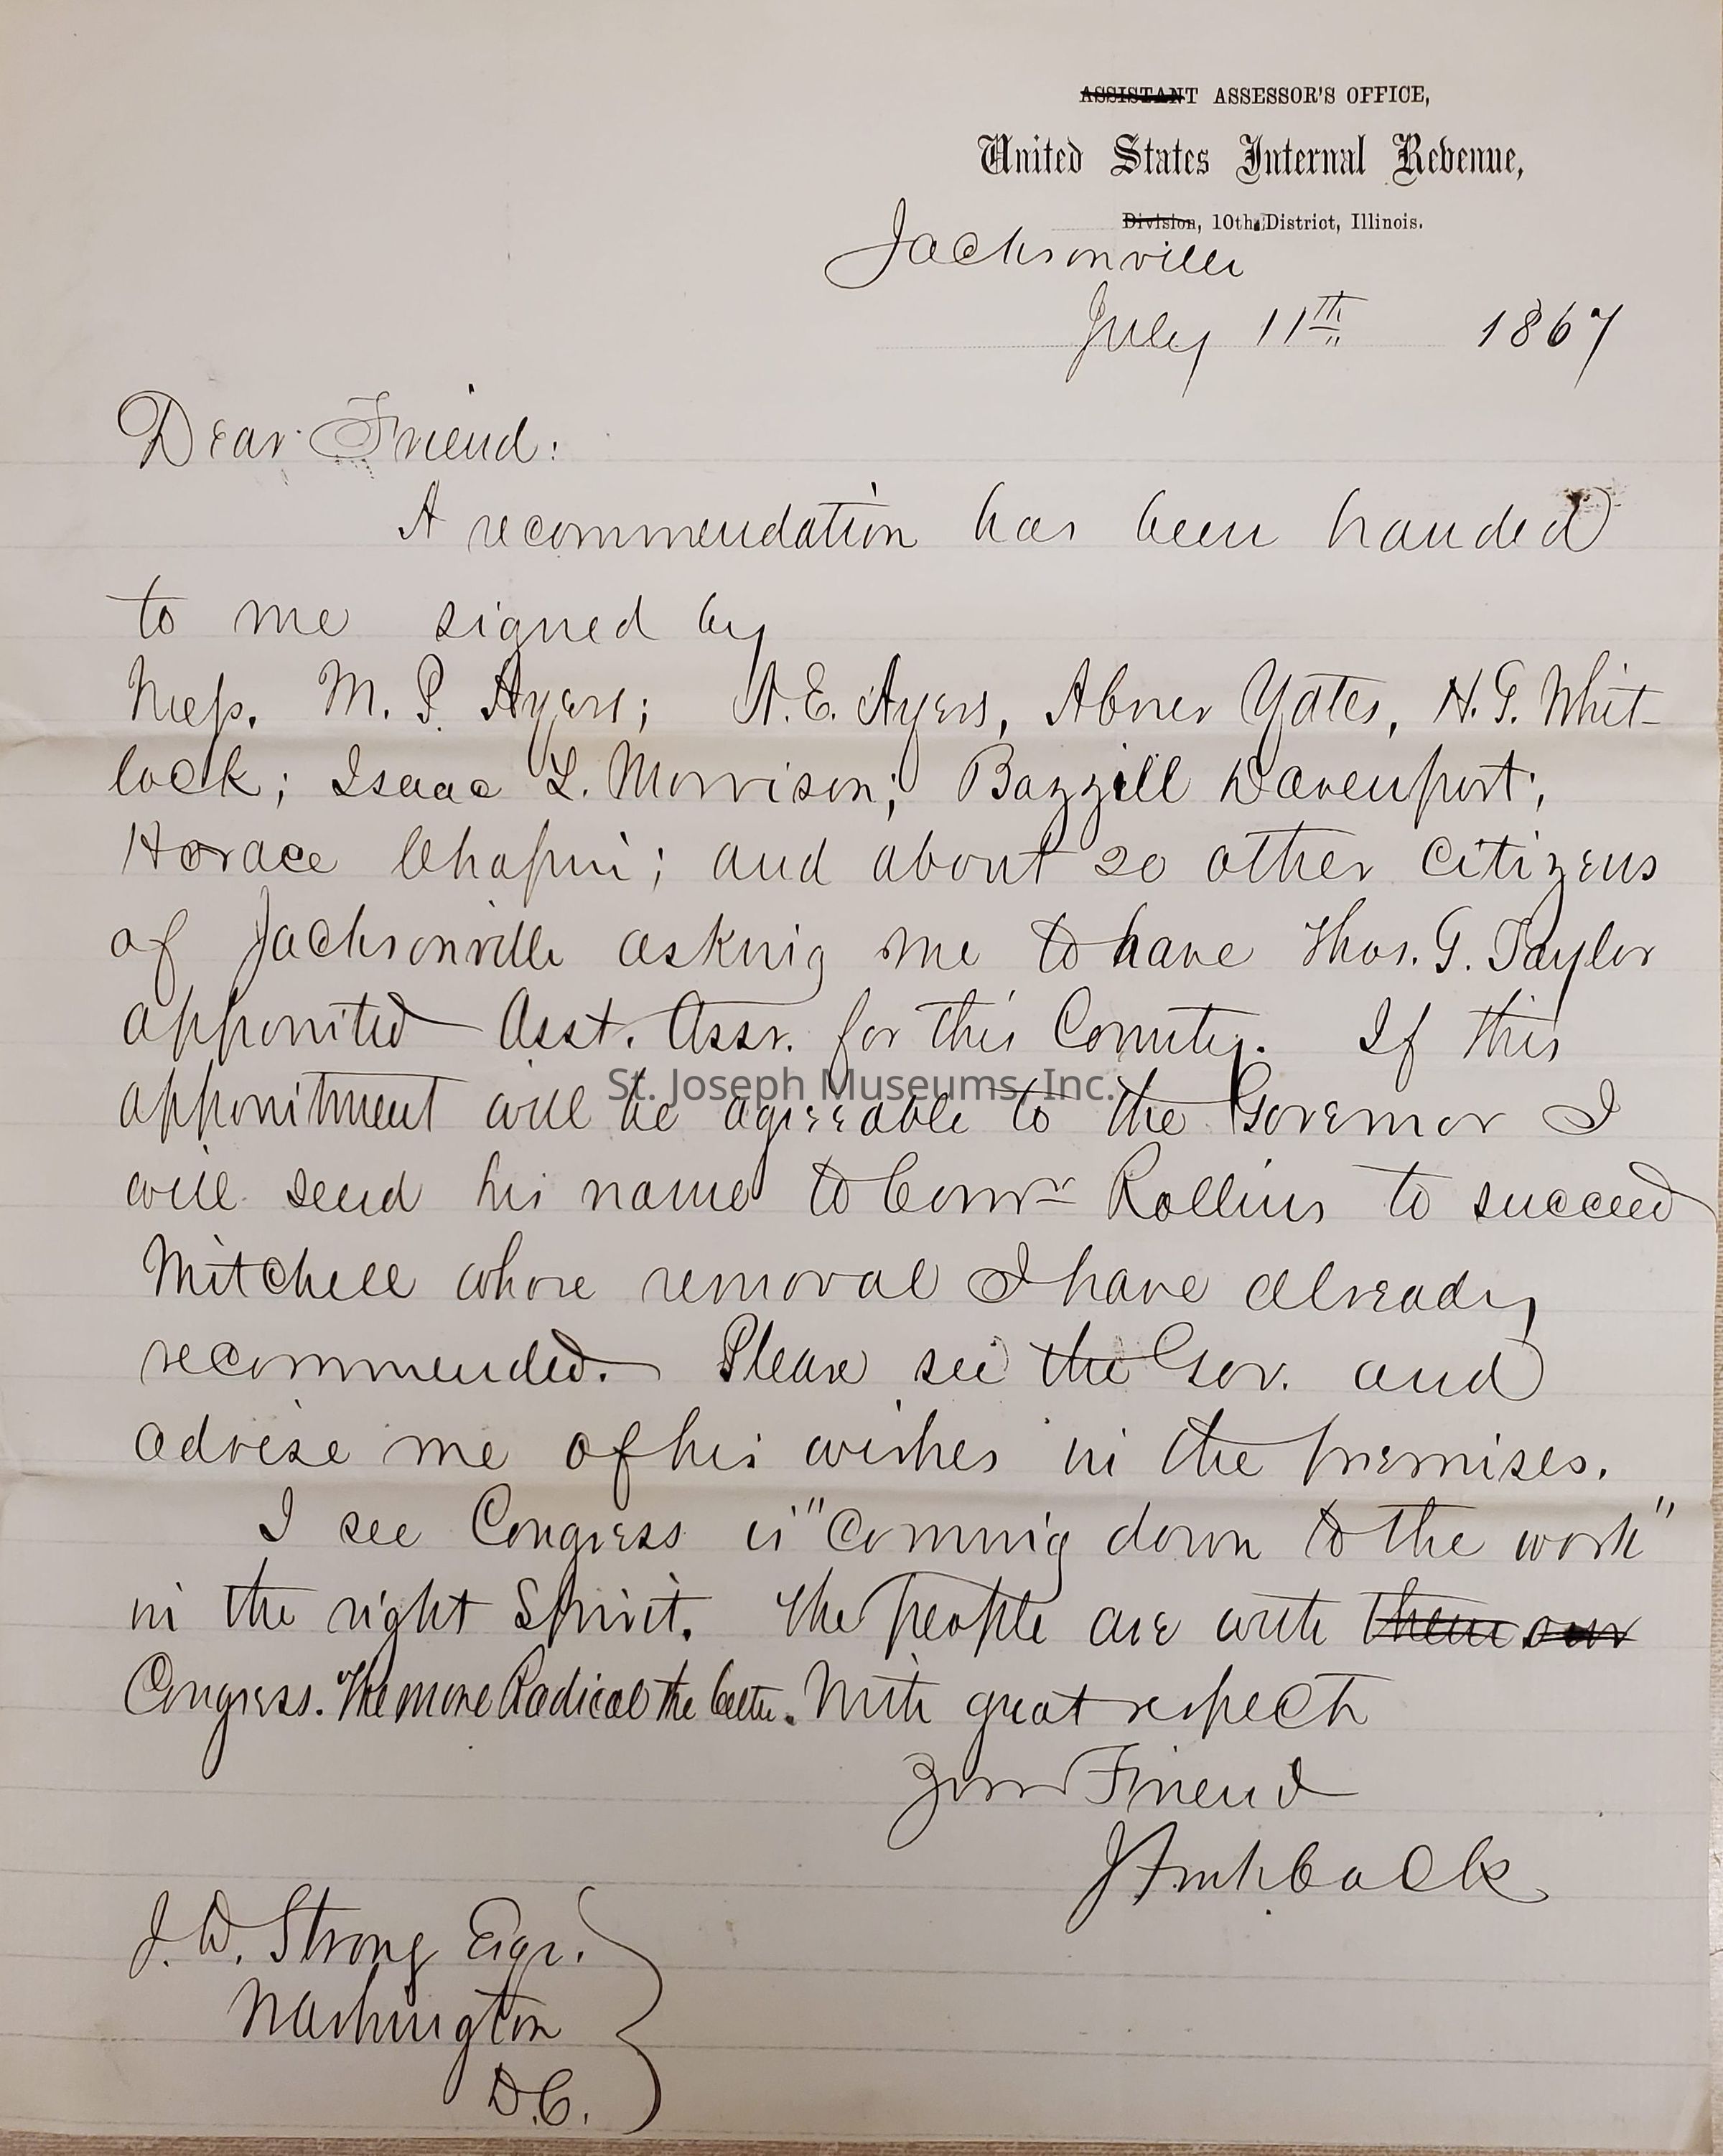 ASSISTANT ASSESSOR'S OFFICE,
United States Internal Revenue,
Division, 10th District, Illinois.
Jacksonville
July 11th 1867
Dear Friend:
A recommendation has been handed
to me signed by
Mess. M. P. Ayers; A. E. Ayers, Abner Yates, H. G. Whit-
lock; Isaac L. Morrison; Bazzill Davenport;
Horace Chapin; and about 20 other citizens
of Jacksonville asking me to have Thos. G. Taylor
appointed Asst. Assr. for this County. If this
appointment will be agreeable to the Governor I
will send his name to Comr Rollins to succeed
Mitchell whose removal I have already
recommended. Please see the Gov. and
advise me of his wishes in the premises.
I see Congress is "coming down to the work"
in the right Spirit. The people are with them our
Congress. The more Radical the better. With great respect
Your Friend
J. D. Strong Esqr.
Washington
D.C.
St. Joseph Museums, Inc.